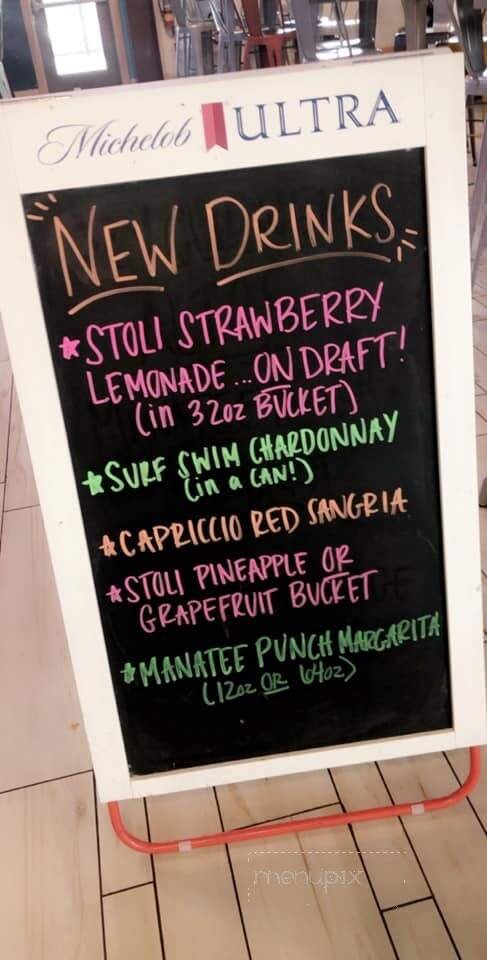 Michelob ULTRA
NEW DRINKS
STOLI STRAWBERRY
LEMONADE... ON DRAFT!
(in 32oz BUCKET)
SURF SWIM CHARDONNAY
(in a CAN!)
CAPRICCIO RED SANGRIA
STOLI PINEAPPLE OR
GRAPEFRUIT BUCKET
MANATEE PUNCH MARGARITA
(12oz OR 64oz)
menupix